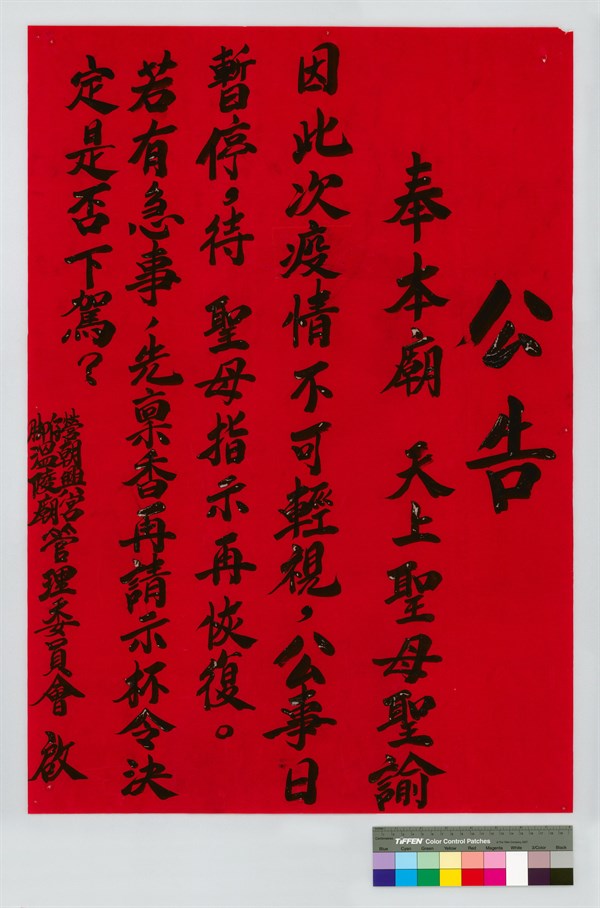 公告
奉本廟 天上聖母聖諭
因此次疫情不可輕視，公事日
暫停，待 聖母指示再恢復。
若有急事，先稟香再請示杯令決
定是否下駕？
營仔腳朝興宮溫陵廟管理委員會 啟
TIFFEN Color Control Patches
Blue Cyan Green Yellow Red Magenta White 3/Color Black